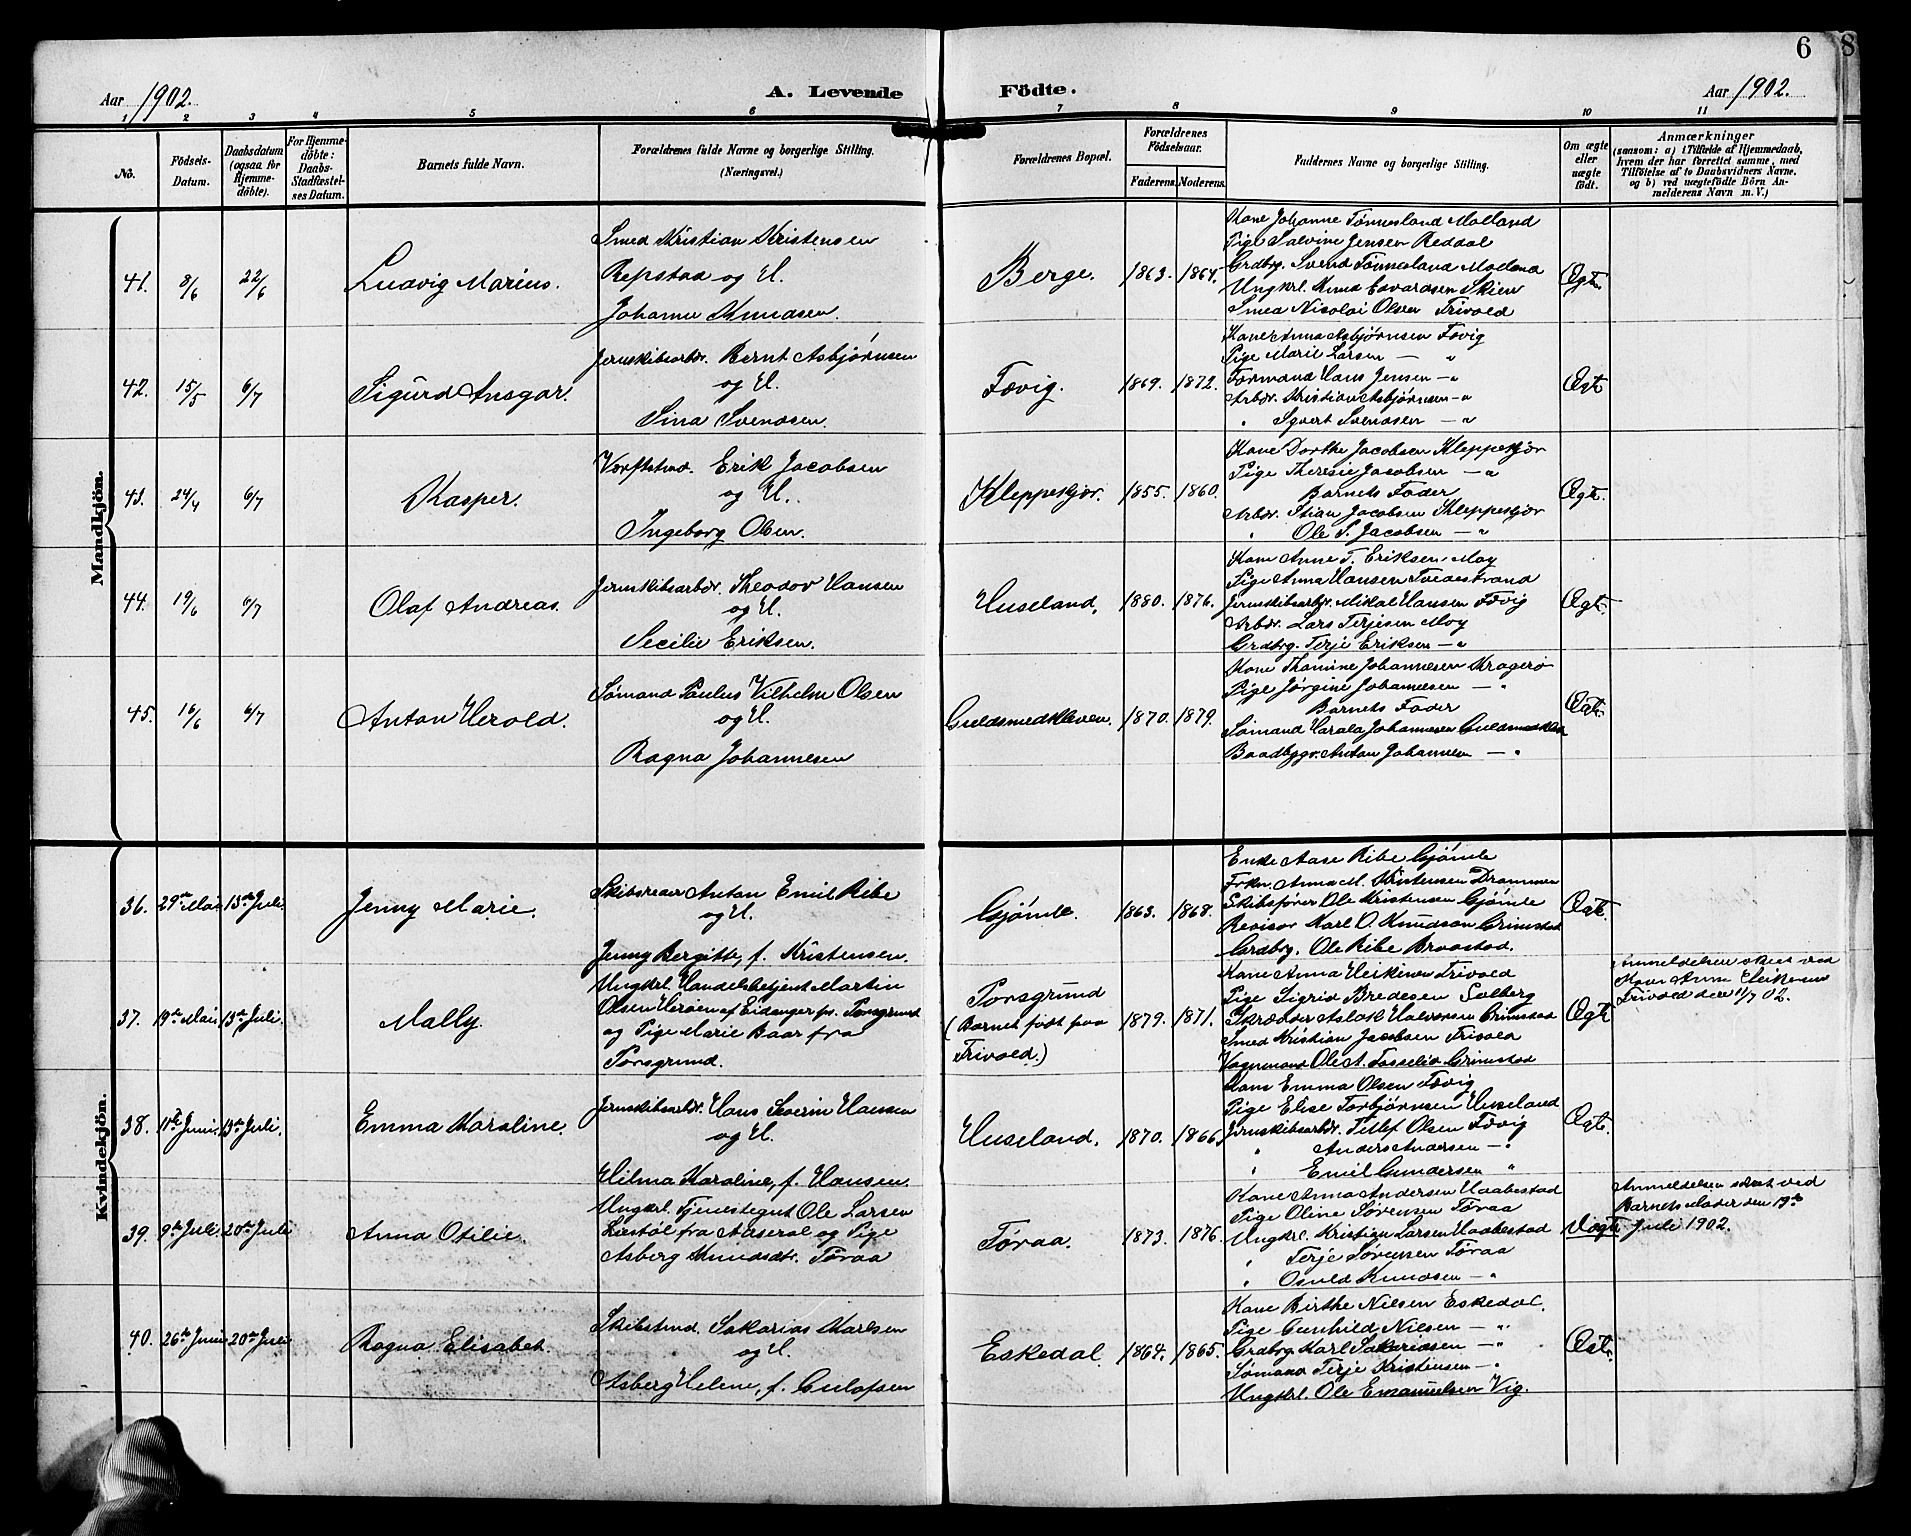 6 8
Aar 1902. A. Levende Födte. Aar 1902.
1 2 3 4 5 6 7 8 9 10 11
No. Födsels-Datum. Daabsdatum (ogsaa for Hjemme-döbte). For Hjemme-döbte: Daabs-Stadfæstel-ses Datum. Barnets fulde Navn. Forældrenes fulde Navne og borgerlige Stilling. (Næringsvei.) Forældrenes Bopæl. Forældrenes Födselsaar. Faderens. Moderens. Faddernes Navne og borgerlige Stilling. Om ægte eller uægte födt. Anmærkninger (saasom: a) i Tilfælde af Hjemmedaab, hvem der har forrettet samme, med Tilföielse af to Daabsvidners Navne, og b) ved uægtefödte Börn An-melderens Navn m. V.)
Mandkjön.
41. 8/6 22/6 Ludvig Marius. Smed Kristian Kristensen
Repstad og H.
Johanne Knudsen.
Berge. 1863. 1864. Kone Johanne Tønnesland Molland
Pige Salvine Jensen Reddal
Grdbrg. Svend Tønnesland Molland
Ungkrl. Knud Edvardsen Skien
Smed Nicolai Olsen Trivold
Ægte.
42. 15/5 6/7 Sigurd Ansgar. Jernskibsarbdr. Bernt Asbjørnsen
og H.
Sina Svendsen.
Fævig. 1869. 1872. Kone Anna Asbjørnsen Fævig
Pige Marie Larsen — "
Formand Hans Jensen — "
Arbdr. Kristian Asbjørnsen — "
" Syvert Svendsen — "
Ægte
43. 24/4 6/7 Kasper. Værftstmd. Erik Jacobsen
og H.
Ingeborg Olsen.
Kleppeskjør. 1855. 1860. Kone Dorthe Jacobsen Kleppeskjør
Pige Theresie Jacobsen — "
Barnets Fader
Arbdr. Stian Jacobsen Kleppeskjør
" Ole S. Jacobsen — "
Ægte.
44. 19/6 6/7 Olaf Andreas. Jernskibsarbdr. Theodor Hansen
og H.
Secilie Eriksen.
Huseland. 1880. 1876. Kone Anne T. Eriksen Moy
Pige Anna Hansen Tvedestrand
Jernskibsarbdr. Mikal Hansen Fævig
Arbdr. Lars Terjesen Moy
Grdbrg. Terje Eriksen — "
Ægte.
45. 16/6 6/7 Anton Herold. Sømand Paulus Vilhelm Olsen
og H.
Ragna Johannesen
Guldsmedkleven. 1870. 1879. Kone Thomine Johannesen Kragerø
Pige Jørgine Johannesen — "
Barnets Fader
Sømand Harald Johannesen Guldsmedklev
Baadbygr. Anton Johannesen — "
Ægte.
Kvindekjön.
36. 29de Mai. 13de Juli. Jenny Marie. Skibsreder Anton Emil Ribe
og H.
Jenny Bergitte, f. Kristensen.
Gjømle. 1863. 1868. Enke Aase Ribe Gjømle
Frkn. Anna M. Kristensen Drammen
Skibsfører Ole Kristensen Gjømle
Revisor Karl O. Knudson Grimstad
Grdbrg. Ole Ribe Braastad.
Ægte.
37. 19de Mai. 13de Juli. Mally. Ungkrl. Handelsbetjent Martin
Olsen Herøen af Eidanger pr. Porsgrund
og Pige Marie Baar fra
Porsgrund.
Porsgrund
(Barnet født paa
Trivold.)
1879. 1871. Kone Anna Trivold
Pige Sigrid Bredesen Solberg
Skrædder Aslak Halvorsen Grimstad
Smed Kristian Jacobsen Trivold
Vognmand Ole A. Fosselie Grimstad
Anmeldelsen skeet ved
Kone Anna
Trivold den 11/7 02.
38. 11te Juni. 13de Juli. Emma Karoline. Jernskibsarbdr. Hans Severin Hansen
og H.
Hilma Karoline, f. Hansen.
Huseland. 1870. 1866. Kone Emma Olsen Fævig
Pige Elise Torbjørnsen Huseland
Jernskibsarbdr. Tellef Olsen Fævig
" Anders Andersen — "
" Emil Gundersen "
Ægte.
39. 9de Juli. 20de Juli Anna Otilie. Ungkrl. Tjenestegut Ole Larsen
Liestøl fra Aaseral og Pige
Asberg Knudsdtr. Tøraa
Tøraa. 1873. 1876. Kone Anna Andersen Haabestad
Pige Oline Sørensen Tøraa
Ungkrl. Kristian Larsen Haabestad
" Terje Sørensen Tøraa
" Osuld Knudsen — "
Uægte
Anmeldelsen skeet ved
Barnets Moder den 19de
Juli 1902.
40. 26de Juni 20de Juli Ragna Elisabet. Skibstmd. Sakarias Karlsen
og H.
Asberg Helene, f. Gulofsen
Eskedal. 1864. 1865. Kone Birthe Nilsen Eskedal.
Pige Gunhild Nilsen — "
Grdbrg. Karl Sakariasen — "
Sømand Terje Kristensen — "
Ungkrl. Ole Emanuelsen Vig.
Ægte.